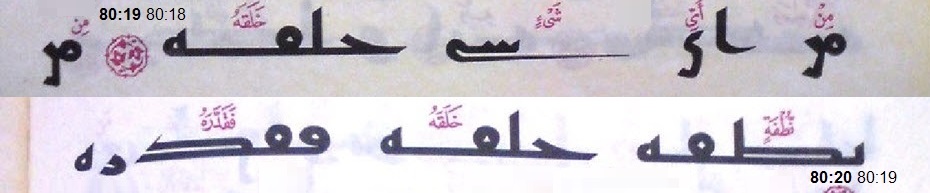 80:19 80:18
مِنْ أَيِّ شَىْءٍ خَلَقَهُ مِن
من اى سى حلقه من
نُّطْفَةٍ خَلَقَهُ فَقَدَّرَهُ
نطفه حلقه فقدره
80:20 80:19